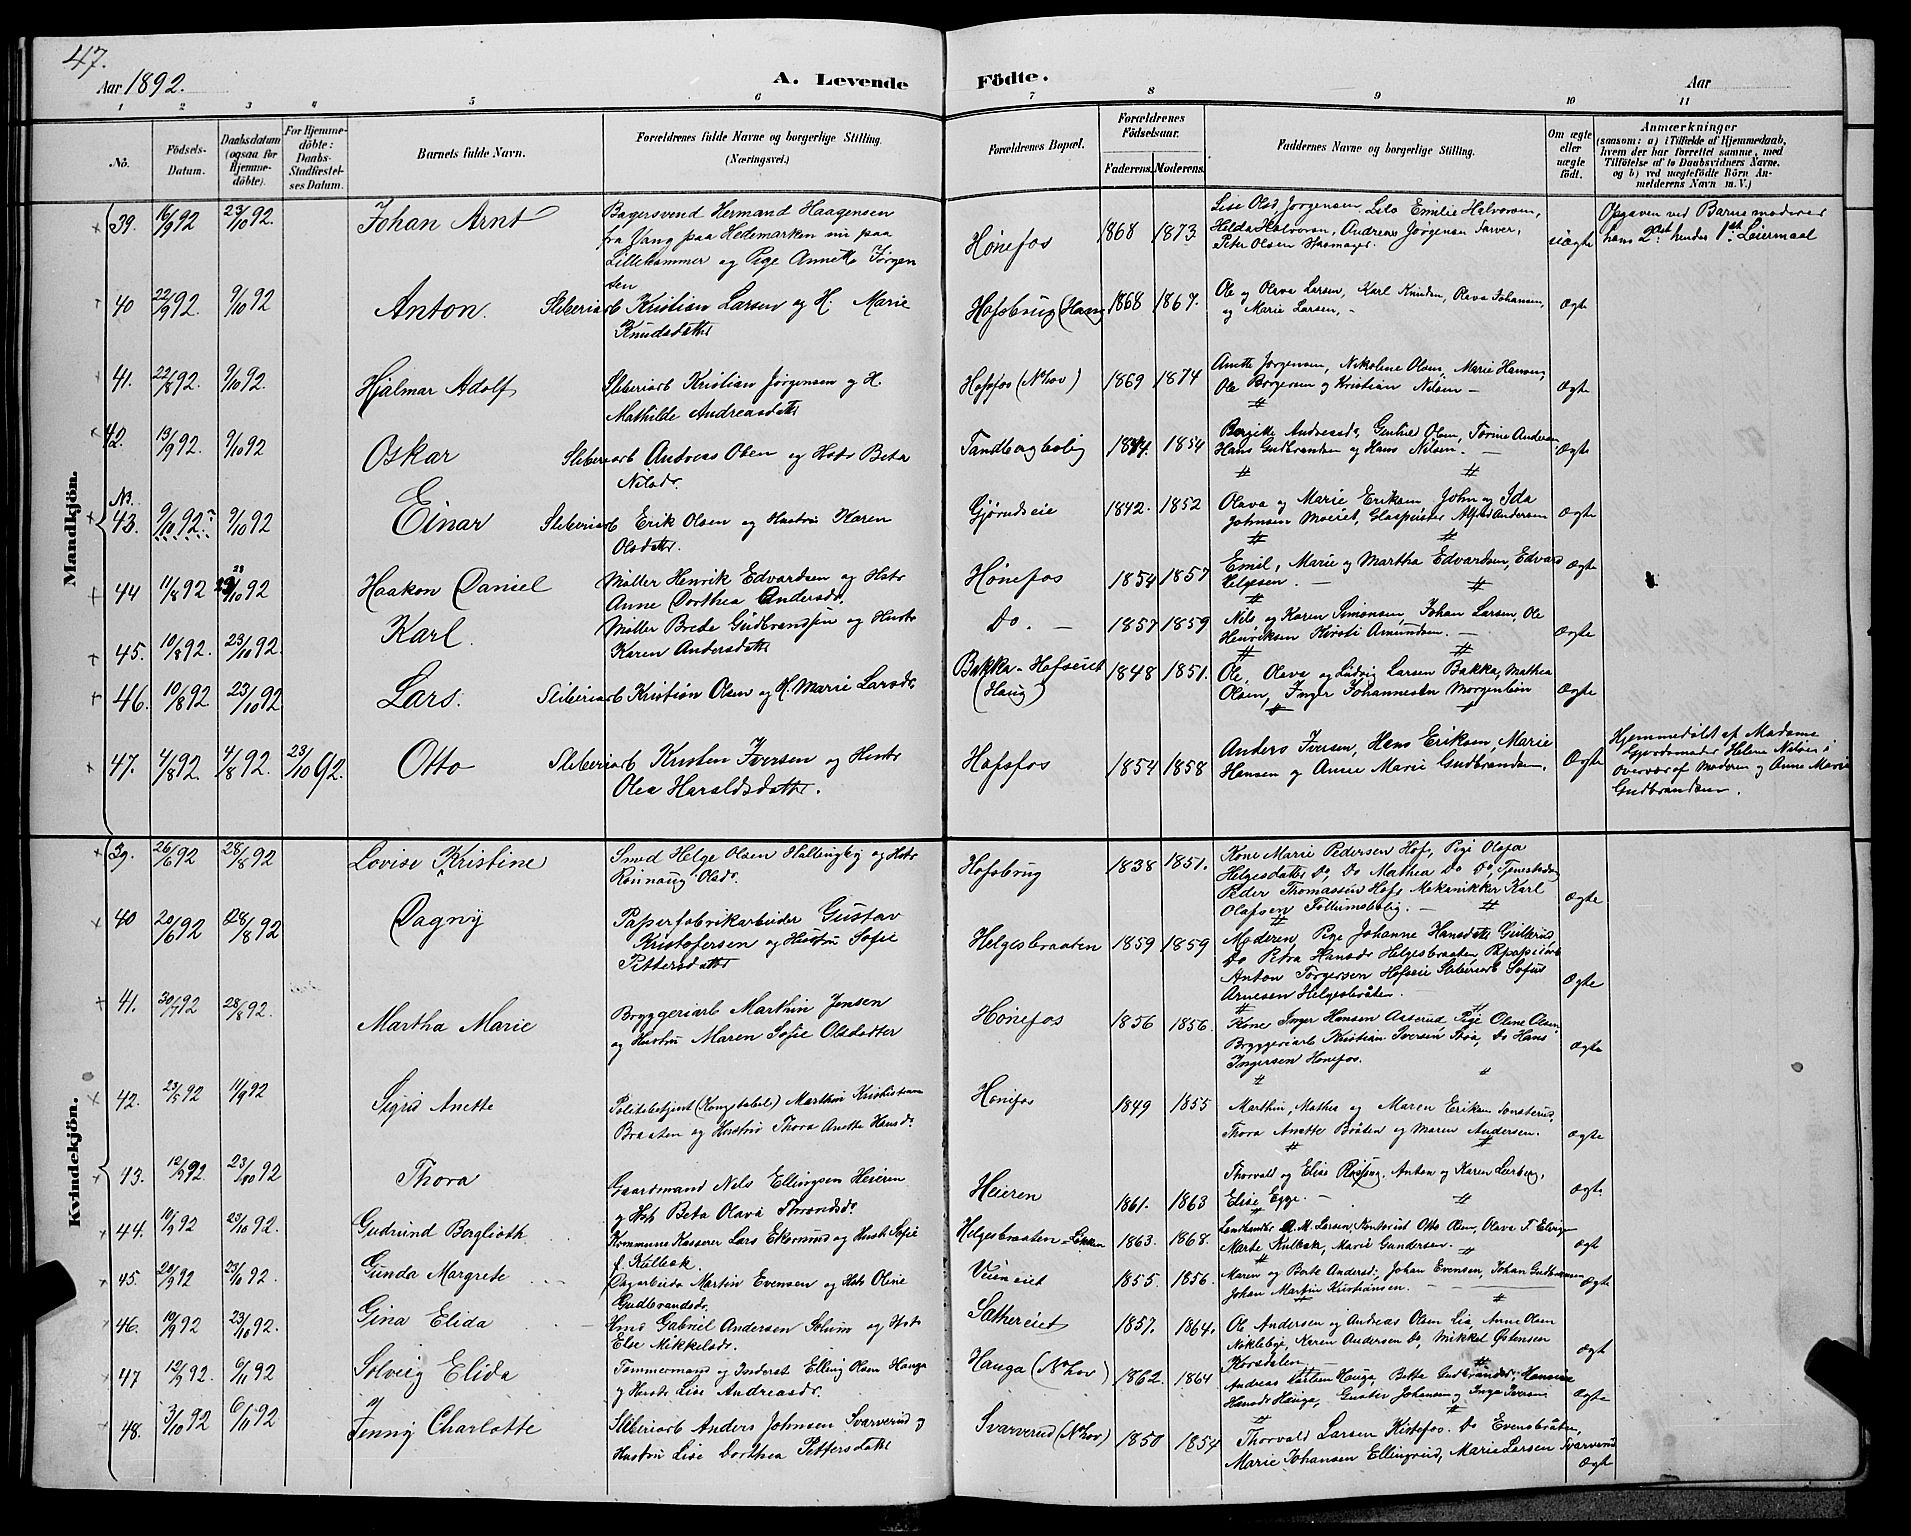 47.
Aar 1892.
A. Levende Födte.
Aar
1 2 3 4 5 6 7 8 9 10 11
No.
Födsels-Datum.
Daabsdatum (ogsaa for Hjemmedöbte).
For Hjemmedöbte: Daabs-Stadfæstelses Datum.
Barnets fulde Navn.
Forældrenes fulde Navne og borgerlige Stilling. (Næringsvei.)
Forældrenes Bopæl.
Forældrenes Födselsaar.
Faderens. Moderens.
Faddernes Navne og borgerlige Stilling.
Om ægte eller uægte födt.
Anmærkninger
(saasom: a) i Tilfælde af Hjemmedaab, hvem der har forrettet samme, med Tilföielse af to Daabsvidners Navne, og b) ved uægtefödte Börn Anmelderens Navn m. V.)
Mandkjön.
39. 16/9 92 23/10 92. Johan Arnt
Bagersvend Hermand Haagensen
fra Vang paa Hedemarken nu paa
Lillehammer og Pige Annette Jørgen
sen
Hønefos 1868 1873
Peter Olsen
uægte
Opgaven ved Barnemoderen
hans 2det hendes 1ste Leiermaal
40 22/9 92. 9/10 92 Anton.
Sliberiarb Kristian Larsen og H. Marie
Knudsdatter
Hofsbrug (Haug) 1868 1867.
Ole og Olava Larsen, Karl Knudsen, Olava Johansen,
og Marie Larsen, -
Ægte
41. 22/8 92. 9/10 92. Hjalmar Adolf
Sliberiarb Kristian Jørgensen og H.
Mathilde Andreasdatter
Hofsfos (N.hov) 1869 1874
Anette Jørgensen, Nikoline Olsen, Marie Hansen,
Ole Borgersen og Kristian Nilsen -
Ægte
42. 13/9 92. 9/10 92 Oskar
Sliberiarb Andreas Olsen og Hstr Beta
Nilsdr.
Tandbergbolig 1854
Andreasdr, Gunhild Olsen, Torine Andersen
Hans Gudbrandsen og Hans Nilsen. -
Ægte
N3.
43. 9/10 92 9/10 92 Einar
Sliberiarb Erik Olsen og Hustru Karen
Olsdatter.
Gjørudseie 1842. 1852
Olava og Marie Eriksen John og Ida
Johnsen Moeiet, Glaspuster Alfred Andersen
Ægte
44 11/8 92 23/10 92 Haakon Daniel
Møller Henrik Edvardsen og Hstr
Anne Dorthea Andersdr.
Hønefos 1854 1857
Emil, Marie og Martha Edvardsen, Edvard
Helgesen. -
Ægte
45. 10/8 92. 23/10 92. Karl.
Møller Brede Gudbrandsen og Hustr
Karen Andersdatter
Do. - 1857 1859
Nils og Karen Simonsen, Johan Larsen, Ole
Henriksen Kirsti Amundsen. -
Ægte
46. 10/8 92 23/10 92 Lars.
Sliberiarb Kristian Olsen og H. Marie Larsdr
Bakka - Hofseiet
(Haug)
1848 1851.
Ole, Olava og Ludvig Larsen Bakka, Mathea
Olsen, Inger Johannesen Morgenbøn
Ægte
47. 4/8 92 4/8 92. 23/10 92. Otto
Sliberiarb Kristen Iversen og Hustr
Olea Haraldsdatter.
Hofsfos 1854 1858
Anders Iversen, Hans Eriksen, Marie
Hansen og Anne Marie Gudbrandsen.
Ægte
Hjemmedøbt af Madame
Gjordemoder Helene Nilsen i
Overvær af Moderen og Anne Marie
Gudbrandsen.
Kvindekjön.
39. 26/6 92 28/8 92 Lovise Kristine
Smed Helge Olsen Hallingby og Hstr
Rønnaug Olsdr.
Hofsbrug 1838 1851.
Kone Marie Pedersen Hof, Pige Olefa
Helgesdatter Do, Do Mathea Do Do,
Peder Thomassen Hofs Mekanikker Karl
Olafsen Follumsbolig. -
Ægte
40 20/6 92 28/8 92 Dagny
Papirfabrikarbeider Gustav
Kristofersen og Hustru Sofie
Pettersdatter
Helgesbraaten 1859 1859
Moderen, Pige Johanne Hansdatter Gullerud
Do Petra Hansdr Helgesbraaten
Anton Torgersen Hofseie Sliberiarb Sofus
Arnesen Helgesbråten. -
Ægte
41. 30/7 92 28/8 92. Martha Marie
Bryggeriarb Marthin Jensen
og Hustru Maren Sofie Olsdatter
Hønefos 1856 1856.
Kone Inger Hansen Aaserud Pige Oline Olsen,
Bryggeriarb Kristian Iversen Do Hans
Ingersen Hønefos.
Ægte
42. 23/5 92 11/9 92 Sigrid Anette
Politibetjent (Konstabel) Marthin Kristiansen
Braaten og Hustru Thora Anette Hansdr
Hønefos 1849 1855
Marthin, Mathea og Maren Eriksen
Thora Anette Bråten og Maren Andersen.
Ægte
43. 12/9 92 23/10 92 Thora
Gaardmand Nils Ellingsen Heieren
og Hstr Beta Olava Thorandsdr
Heieren 1861. 1863
Thorvald og Elise Anton og Karen Lerberg,
Elise Egge. -
Ægte
44. 10/9 92 23/10 92. Gudrund Berglioth
Kommune Kasserer Lars Ekornrud og Hustr Sofie
f. Kulbek.
Helgesbraaten - Løkken 1863. 1868.
A. M. Larsen, Otto Olsen, Olava T.
Marte Kulbek, Marie Gundersen.
Ægte
45. 20/9 92 23/10 92. Gunda Margrete
Dagarbeider Martin Evensen og Hstr Oline
Gudbrandsdr.
Veieneiet 1855. 1856.
Maren og Berte Andersdr, Johan Evensen, Johan Gudbransen
Johan Martin Kristiansen. -
Ægte
46. 10/9 92 23/10 92. Gina Elida
Gabriel Andersen Solum og Hstr
Else Mikkelsdr.
Sathereiet 1857. 1864.
Ole Andersen og Andreas Olsen Lia, Anne Olsen
Nøkleby, Karen Andersen Do, Mikkel Østensen
Korsdalen -
Ægte
47 12/9 92. 6/11 92 Solveig Elida
Tømmermand og Inderst Elling Olsen Hauga
og Hustr Lise Andreasdr.
Hauga (N.hov) 1862. 1864
Andreas Karlsen Hauga, Bette Gudbrandsdr, Hansine
Hansdr Hauga, Gustav Johansen og Inga Iversen
Ægte
48. 3/10 92 6/11 92 Jenny Charlotte
Sliberiarb Anders Johnsen Svarverud og
Hustru Lise Dorthea Pettersdatter
Svarverud (N.hov) 1850 1854
Thorvald Larsen Kistefos. Do Evensbråten,
Marie Johansen Ellingsrud, Marie Larsen Svarverud
Ægte